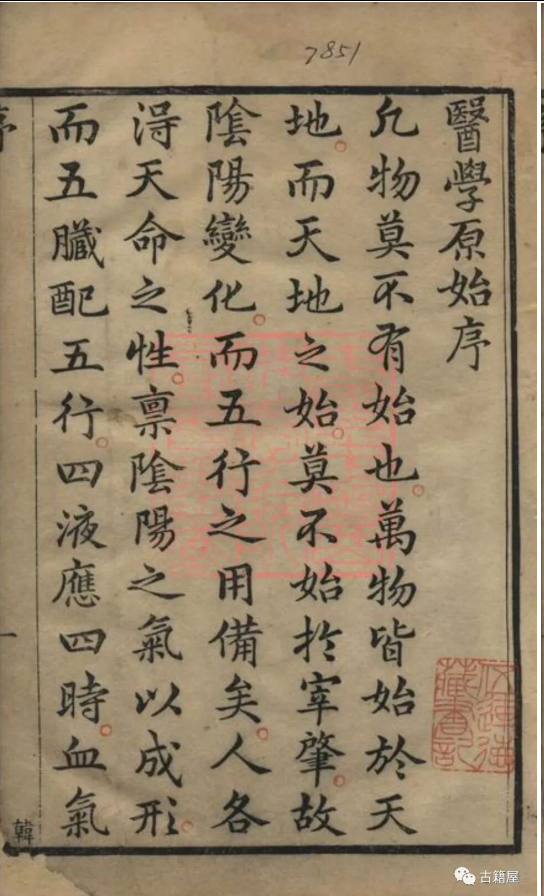 7851
醫學原始序
凡物莫不有始也萬物皆始於天
地而天地之始莫不始扵宰肇故
陰陽變化而五行之用備矣人各
淂天命之性禀陰陽之氣以成形
而五臟配五行四液應四時血氣
序
一
韓
古籍屋